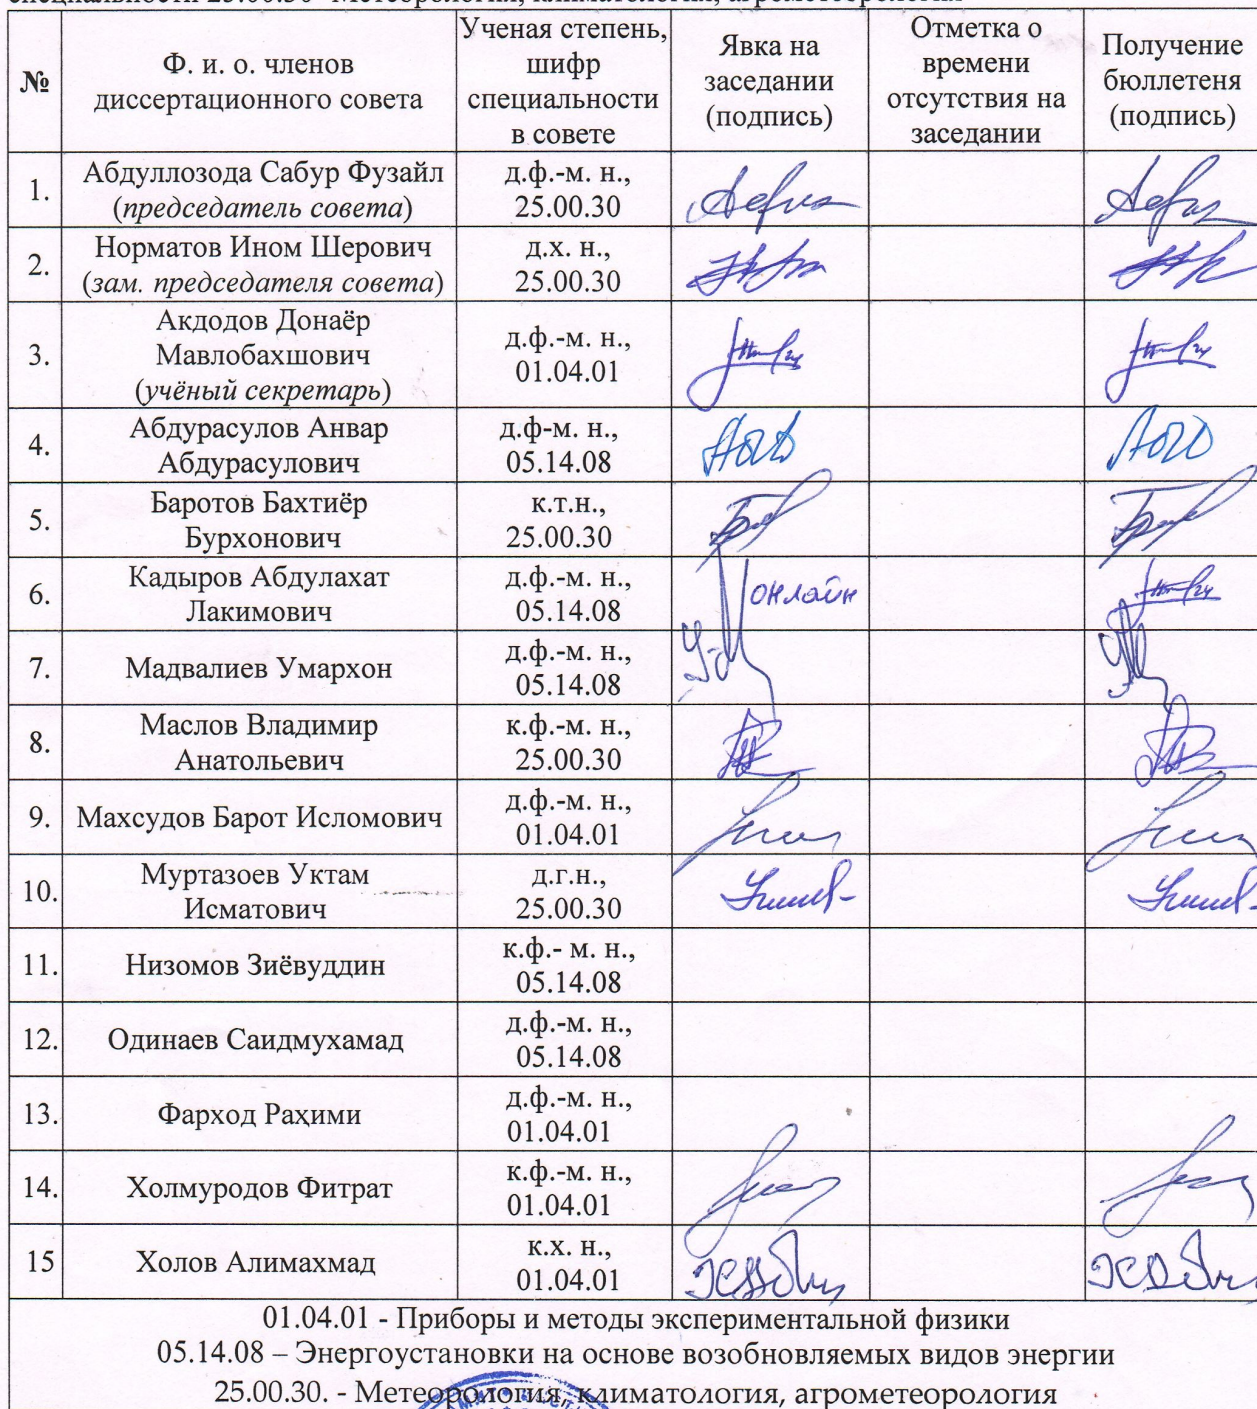 специальности 25.00.30- Метеорология, климатология, агрометеорология
№
Ф. и. о. членов
диссертационного совета
Ученая степень,
шифр
специальности
в совете
Явка на
заседании
(подпись)
Отметка о
времени
отсутствия на
заседании
Получение
бюллетеня
(подпись)
1.
Абдуллозода Сабур Фузайл
(председатель совета)
д.ф.-м. н.,
25.00.30
2.
Норматов Ином Шерович
(зам. председателя совета)
д.х. н.,
25.00.30
3.
Акдодов Донаёр
Мавлобахшович
(учёный секретарь)
д.ф.-м. н.,
01.04.01
4.
Абдурасулов Анвар
Абдурасулович
д.ф-м. н.,
05.14.08
5.
Баротов Бахтиёр
Бурхонович
к.т.н.,
25.00.30
6.
Кадыров Абдулахат
Лакимович
д.ф.-м. н.,
05.14.08
онлайн
7.
Мадвалиев Умархон
д.ф.-м. н.,
05.14.08
8.
Маслов Владимир
Анатольевич
к.ф.-м. н.,
25.00.30
9.
Махсудов Барот Исломович
д.ф.-м. н.,
01.04.01
10.
Муртазоев Уктам
Исматович
д.г.н.,
25.00.30
11.
Низомов Зиёвуддин
к.ф.- м. н.,
05.14.08
12.
Одинаев Саидмухамад
д.ф.-м. н.,
05.14.08
13.
Фарход Раҳими
д.ф.-м. н.,
01.04.01
14.
Холмуродов Фитрат
к.ф.-м. н.,
01.04.01
15
Холов Алимахмад
к.х. н.,
01.04.01
01.04.01 - Приборы и методы экспериментальной физики
05.14.08 – Энергоустановки на основе возобновляемых видов энергии
25.00.30. - Метеорология, климатология, агрометеорология